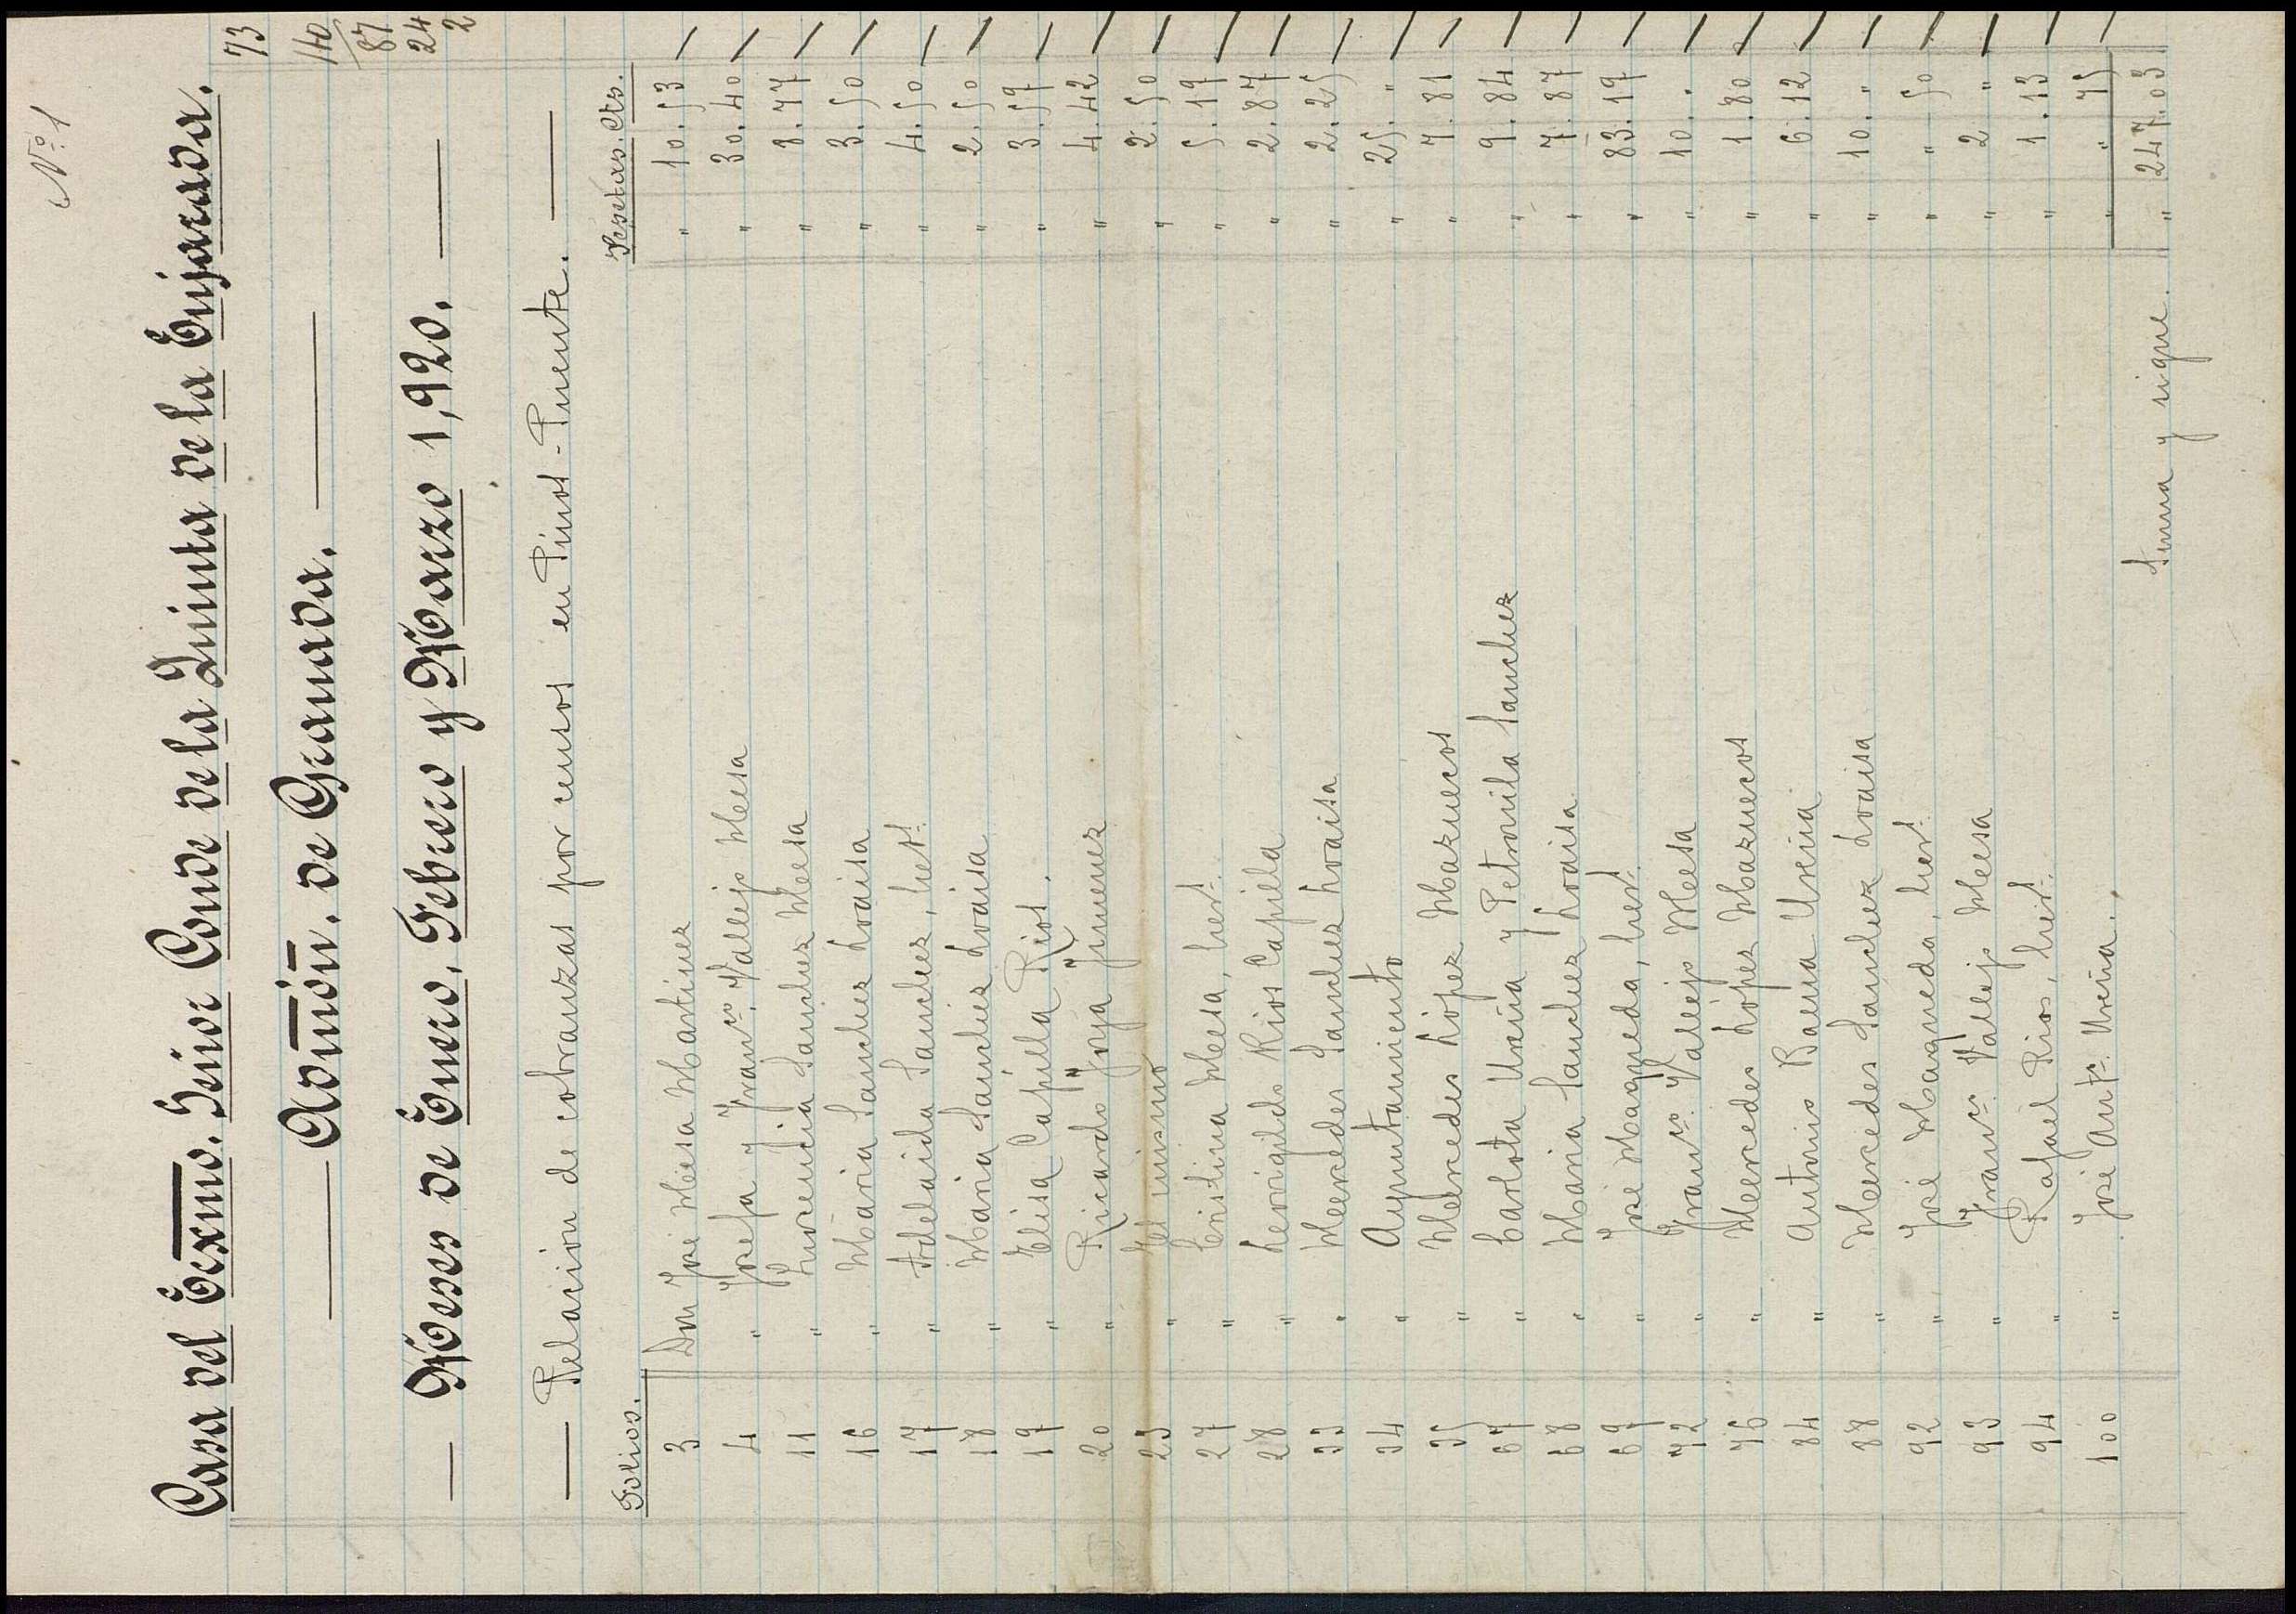 Nº 1
Casa del Excmo. Señor Conde de la Quinta de la Enjarada.
73
Admón. de Granada.
110
87
Meses de Enero, Febrero y Marzo 1,920.
24
2
Relacion de cobranzas por censos en Pinos-Puente.
Folios. Pesetas. Cts.
3 Don José Mesa Martinez " 10.53
4 " Josefa y Franco. Vallejo Mesa " 30.40
11 " Lorencia Sanchez Mesa " 8.77
16 " Maria Sanchez Loaisa " 3.50
17 " Adelaida Sanchez, hers. " 4.50
18 " Maria Sanchez Loaisa " 2.50
19 " Elisa Capilla Rios. " 3.59
20 " Ricardo "Joya "Jimenez " 4.42
25 " El mismo " 2.50
27 " Cristina Mesa, hers. " 5.19
28 " Leovigildo Rios Capilla " 2.87
33 " Mercedes Sanchez Loaisa " 2.25
34 " Ayuntamiento " 25. "
35 " Mercedes López Mazuecos " 7.81
67 " Carlota Ureña y Petronila Sanchez " 9.84
68 " Maria Sanchez Loaisa " 7.87
69 " José Maqueda, hers. " 83.19
72 " Franco. Vallejo Mesa " 10. "
76 " Mercedes López Mazuecos " 1.80
84 " Antonio Baena Ureña " 6.12
88 " Mercedes Sanchez Loaisa " 10. "
92 " José Maqueda, hers. " " 50
93 " Franco. Vallejo Mesa " 2 "
94 " Rafael Rios, hers. " 1.13
100 " José Anto. Ureña. " " 75
Suma y sigue. " 247.03